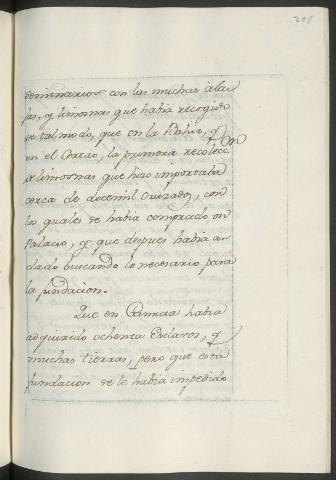 201
Seminarios con las muchas alaja
jas, y limosnas que habia recogido
de tal modo, que en la Bahia, y
en el Certao, la primera recolecc
on
de limosnas que hizo importaba
cerca de doce mil Cruzados, con
los quales se habia comprado un
Palacio, y que despues habia an
dado buscando lo necesario para
la fundacion.
Que en habia
adquirido ochenta Esclavos, y
muchas tierras, pero que esta
fundacion se le habia impedido